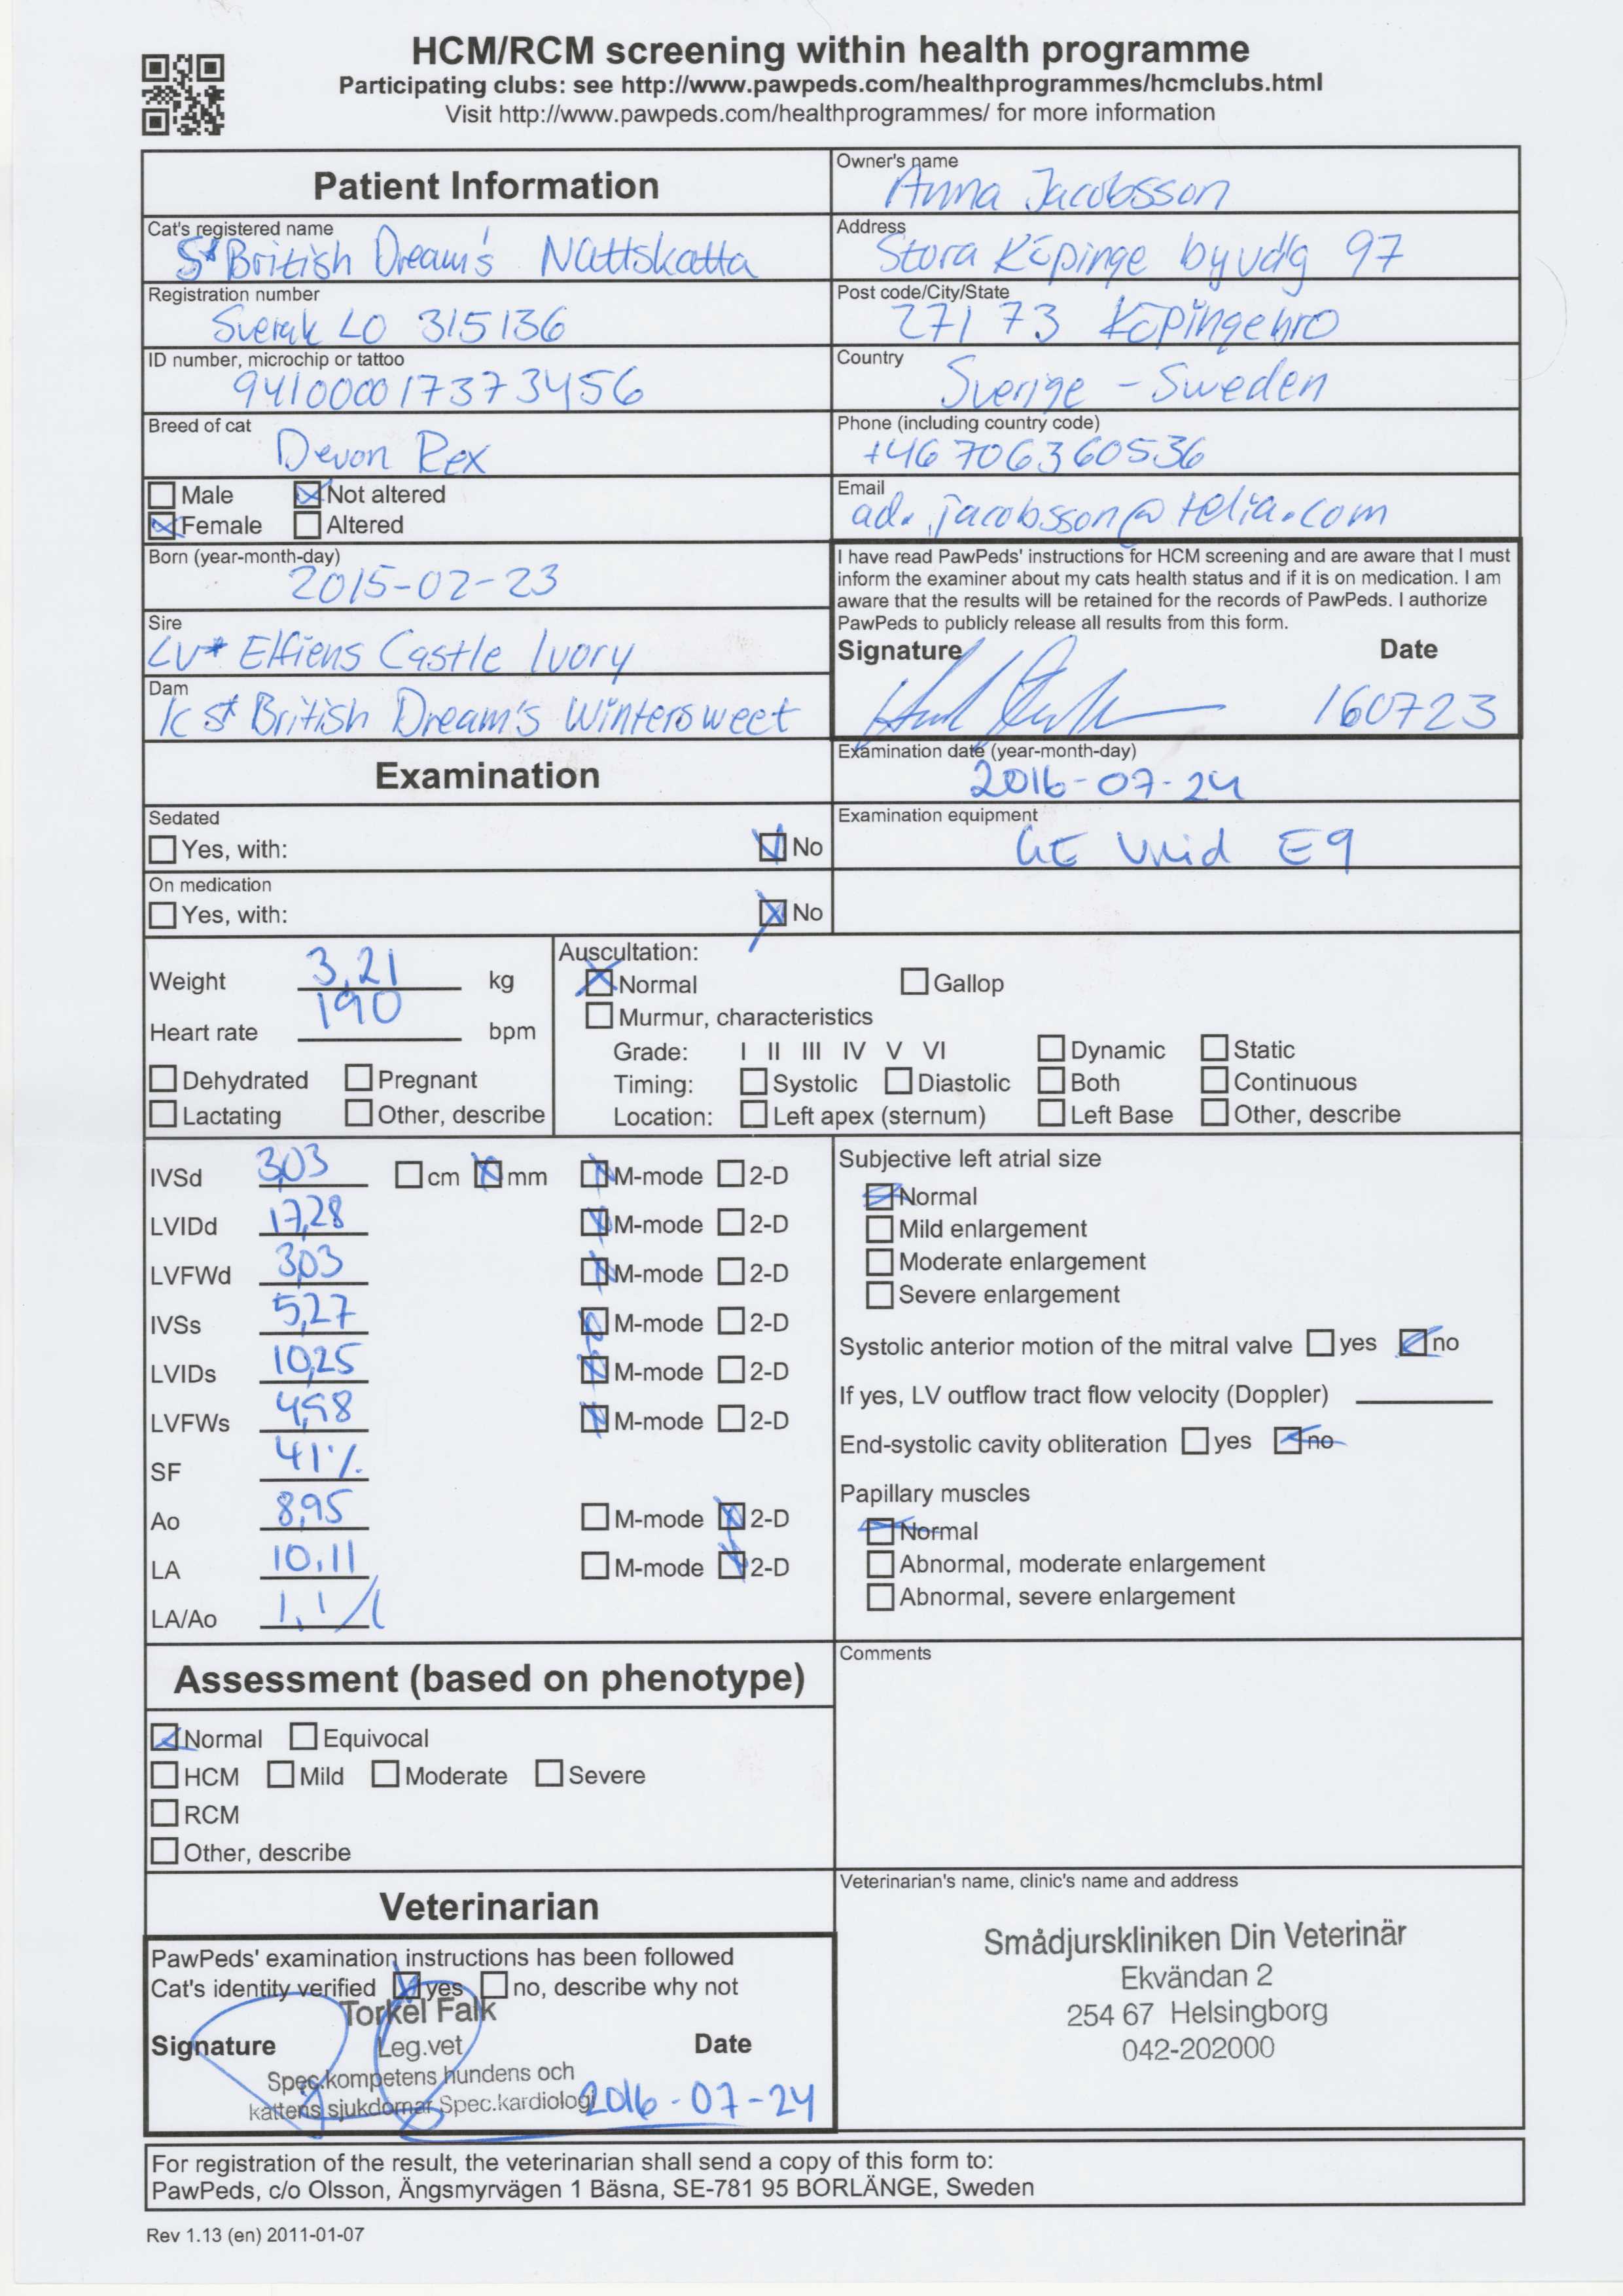 HCM/RCM screening within health programme
Participating clubs: see http://www.pawpeds.com/healthprogrammes/hcmclubs.html
Visit http://www.pawpeds.com/healthprogrammes/ for more information
Patient Information
Owner's name
Anna Jacobsson
Cat's registered name
S* British Dream's Nattskatta
Address
Stora Köpinge byväg 97
Registration number
Sverak LO 315136
Post code/City/State
271 73 Köpingebro
ID number, microchip or tattoo
941000017373456
Country
Sverige - Sweden
Breed of cat
Devon Rex
Phone (including country code)
+46 706360536
Male Not altered
Female Altered
Email
ad.jacobsson@telia.com
Born (year-month-day)
2015-02-23
I have read PawPeds' instructions for HCM screening and are aware that I must
inform the examiner about my cats health status and if it is on medication. I am
aware that the results will be retained for the records of PawPeds. I authorize
PawPeds to publicly release all results from this form.
Sire
LV* Elfiens Castle Ivory
Signature Date
160723
Dam
IC S* British Dream's Wintersweet
Examination
Examination date (year-month-day)
2016-07-24
Sedated
Yes, with: No
Examination equipment
GE Vivid E9
On medication
Yes, with: No
Weight 3,21 kg
Heart rate 190 bpm
Dehydrated Pregnant
Lactating Other, describe
Auscultation:
Normal Gallop
Murmur, characteristics
Grade: I II III IV V VI Dynamic Static
Timing: Systolic Diastolic Both Continuous
Location: Left apex (sternum) Left Base Other, describe
IVSd 3,03 cm mm M-mode 2-D
LVIDd 17,28 M-mode 2-D
LVFWd 3,03 M-mode 2-D
IVSs 5,27 M-mode 2-D
LVIDs 10,25 M-mode 2-D
LVFWs 4,98 M-mode 2-D
SF 41%
Ao 8,95 M-mode 2-D
LA 10,11 M-mode 2-D
LA/Ao 1,1
Subjective left atrial size
Normal
Mild enlargement
Moderate enlargement
Severe enlargement
Systolic anterior motion of the mitral valve yes no
If yes, LV outflow tract flow velocity (Doppler)
End-systolic cavity obliteration yes no
Papillary muscles
Normal
Abnormal, moderate enlargement
Abnormal, severe enlargement
Assessment (based on phenotype)
Normal Equivocal
HCM Mild Moderate Severe
RCM
Other, describe
Comments
Veterinarian
PawPeds' examination instructions has been followed
Cat's identity verified yes no, describe why not
Torkel Falk
Signature Leg.vet Date
Spec.kompetens hundens och
kattens sjukdomar Spec.kardiologi 2016-07-24
Veterinarian's name, clinic's name and address
Smådjurskliniken Din Veterinär
Ekvändan 2
254 67 Helsingborg
042-202000
For registration of the result, the veterinarian shall send a copy of this form to:
PawPeds, c/o Olsson, Ängsmyrvägen 1 Bäsna, SE-781 95 BORLÄNGE, Sweden
Rev 1.13 (en) 2011-01-07